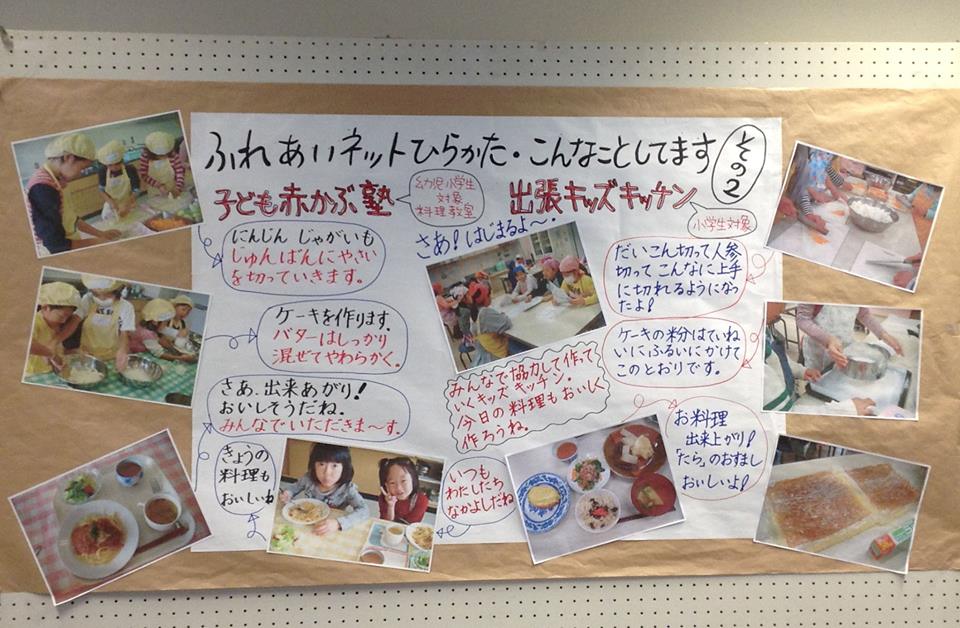 ふれあいネットひらかた・こんなことしてます
その2
子ども赤かぶ塾
幼児小学生
対象
料理教室
にんじん じゃがいも
じゅんばんにやさい
を切っていきます。
ケーキを作ります。
バターはしっかり
混ぜてやわらかく。
さあ、出来あがり!
おいしそうだね。
みんなでいただきま〜す。
きょうの
料理も
おいしいね
いつも
わたしたち
なかよしだね
出張キッズキッチン
小学生対象
さあ!はじまるよ〜
だいこん切って人参
切って こんなに上手
に切れるようになっ
たよ!
ケーキの粉分はていね
いにふるいにかけて
このとおりです。
みんなで協力して作って
いくキッズキッチン。
今日の料理もおいしく
作ろうね。
お料理
出来上がり!
「たら」のおすまし
おいしいよ!